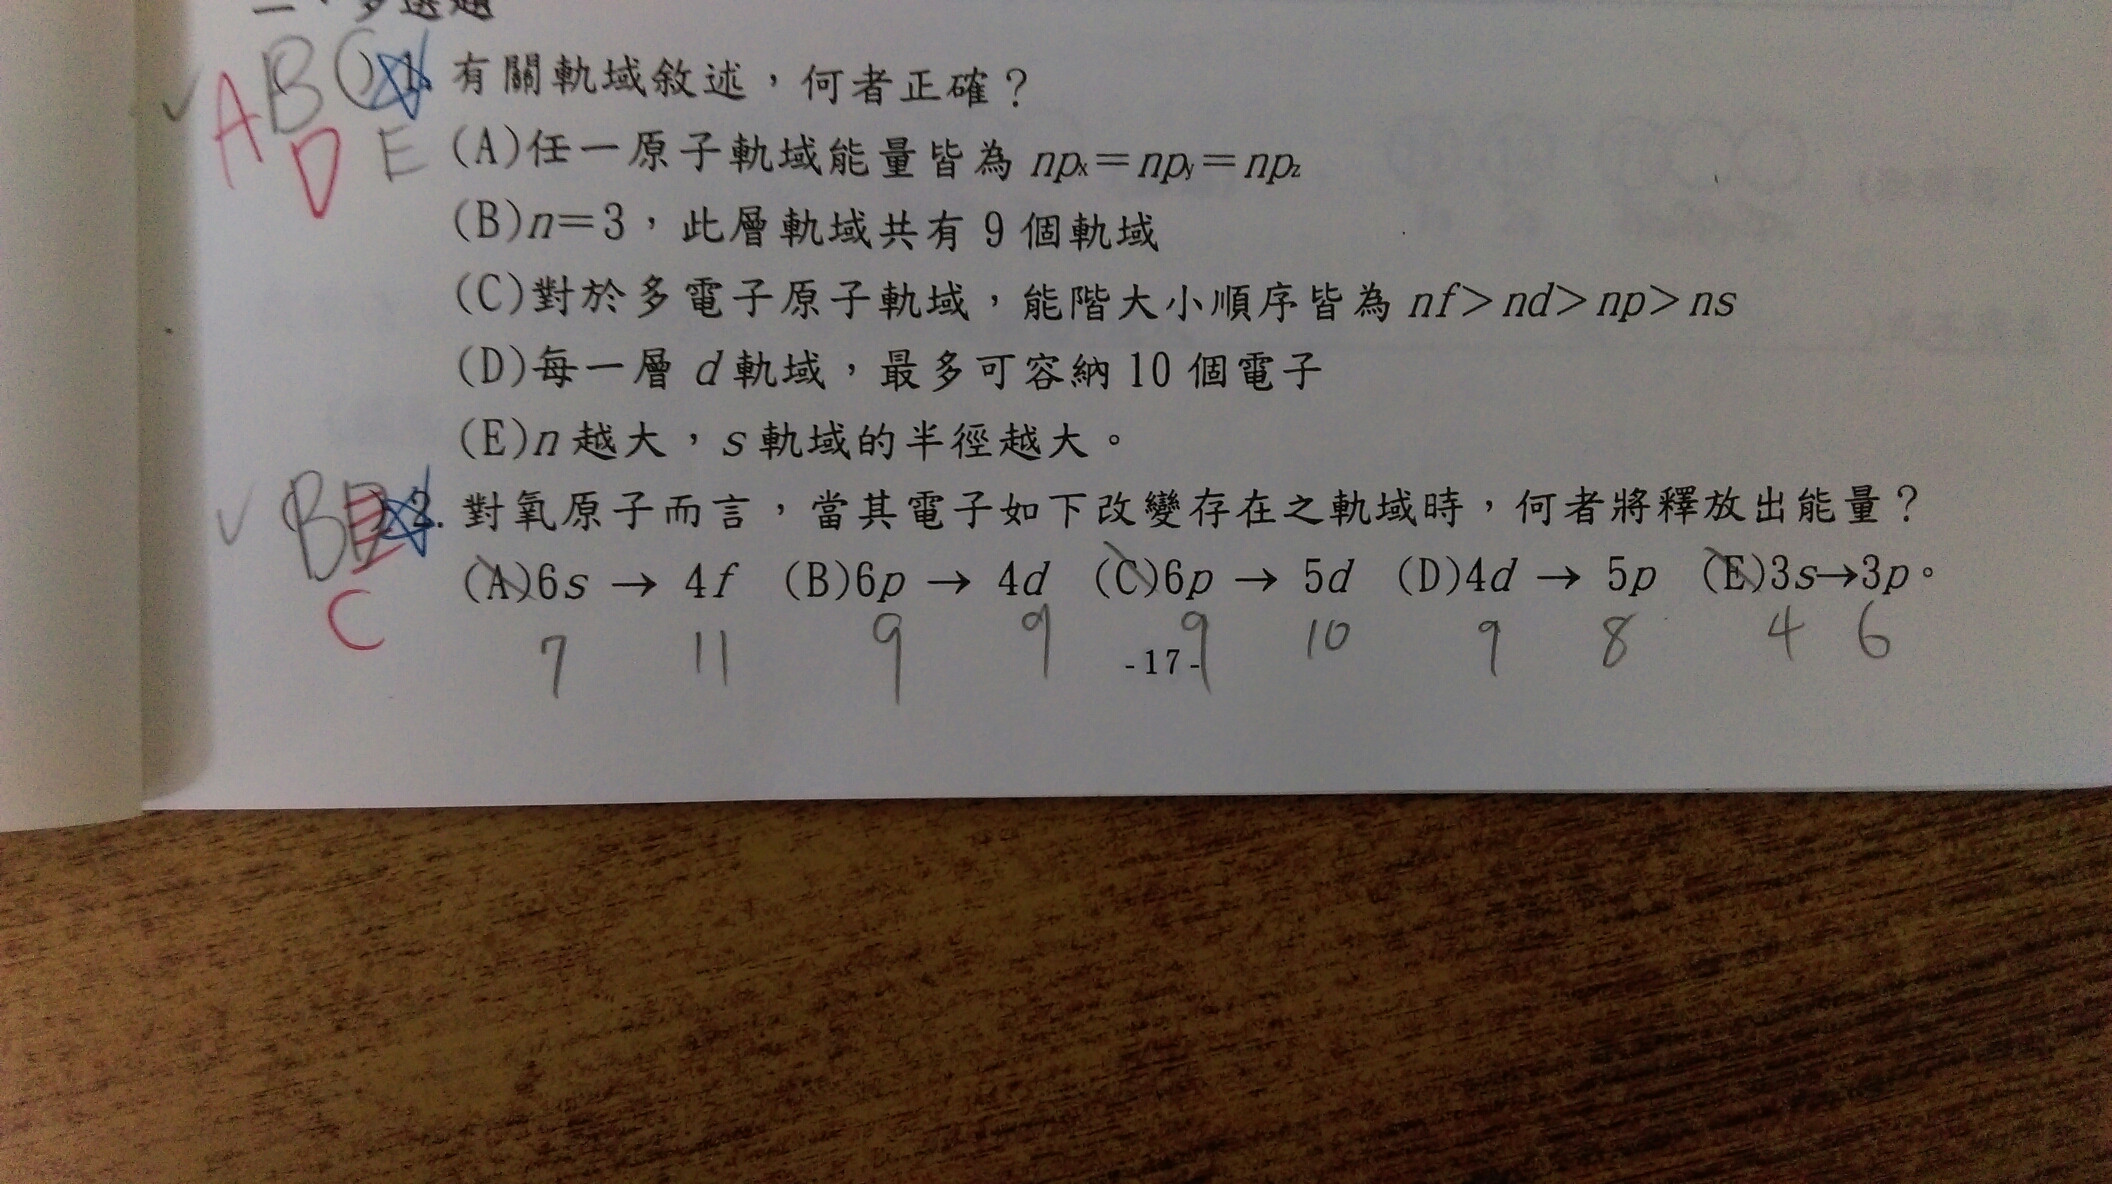 二、多選題
ABC 1. 有關軌域敘述，何者正確？
D E (A)任一原子軌域能量皆為 npx＝npy＝npz
(B)n＝3，此層軌域共有 9 個軌域
(C)對於多電子原子軌域，能階大小順序皆為 nf＞nd＞np＞ns
(D)每一層 d 軌域，最多可容納 10 個電子
(E)n 越大，s 軌域的半徑越大。
B 2. 對氧原子而言，當其電子如下改變存在之軌域時，何者將釋放出能量？
C (A)6s → 4f (B)6p → 4d (C)6p → 5d (D)4d → 5p (E)3s→3p。
7 11 9 9 9 10 9 8 4 6
-17-